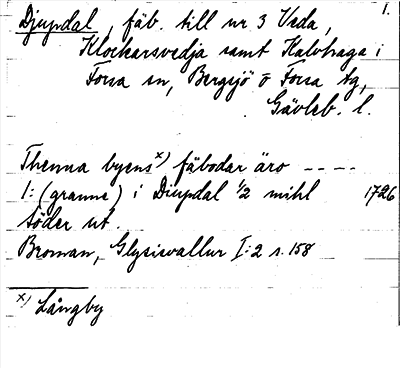 1.
Djupdal, fäb. till nr 3 Veda,
Klockarsvedja samt Kalvhaga i
Forsa sn, Bergsjö o Forsa tg,
Gävleb. l.
Thenna byens x) fäbodar äro ----
1: (granne) i Diupdal 1/2 mihl 1726
söder ut.
Broman, Glysisvallur I:2 s. 158
x) Långby